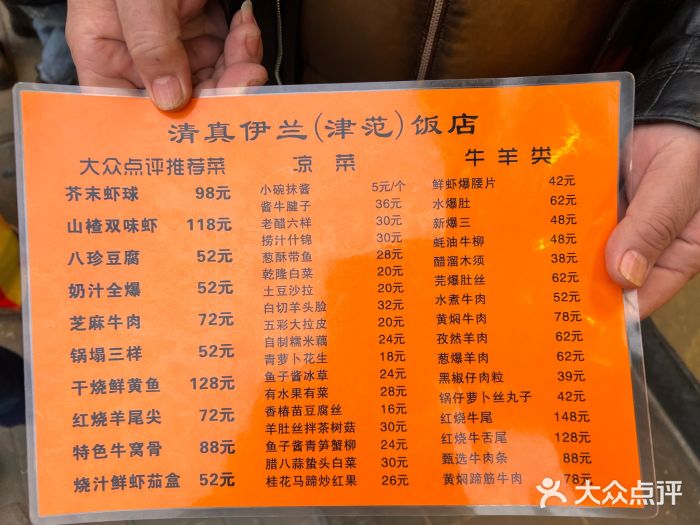 清真伊兰(津范)饭店
大众点评推荐菜
芥末虾球 98元
山楂双味虾 118元
八珍豆腐 52元
奶汁全爆 52元
芝麻牛肉 72元
锅塌三样 52元
干烧鲜黄鱼 128元
红烧羊尾尖 72元
特色牛窝骨 88元
烧汁鲜虾茄盒 52元
凉菜
小碗抹酱 5元/个
酱牛腱子 36元
老醋六样 30元
捞汁什锦 30元
葱酥带鱼 28元
乾隆白菜 20元
土豆沙拉 20元
白切羊头脸 32元
五彩大拉皮 20元
自制糯米藕 24元
青萝卜花生 18元
鱼子酱冰草 24元
有水果有菜 28元
香椿苗豆腐丝 16元
羊肚丝拌茶树菇 30元
鱼子酱青笋蟹柳 24元
腊八蒜蛰头白菜 30元
桂花马蹄炒红果 26元
牛羊类
鲜虾爆腰片 42元
水爆肚 62元
新爆三 48元
蚝油牛柳 48元
醋溜木须 38元
芫爆肚丝 62元
水煮牛肉 52元
黄焖牛肉 78元
孜然羊肉 62元
葱爆羊肉 62元
黑椒仔肉粒 39元
锅仔萝卜丝丸子 42元
红烧牛尾 148元
红烧牛舌尾 128元
甄选牛肉条 88元
黄焖蹄筋牛肉 78元
大众点评